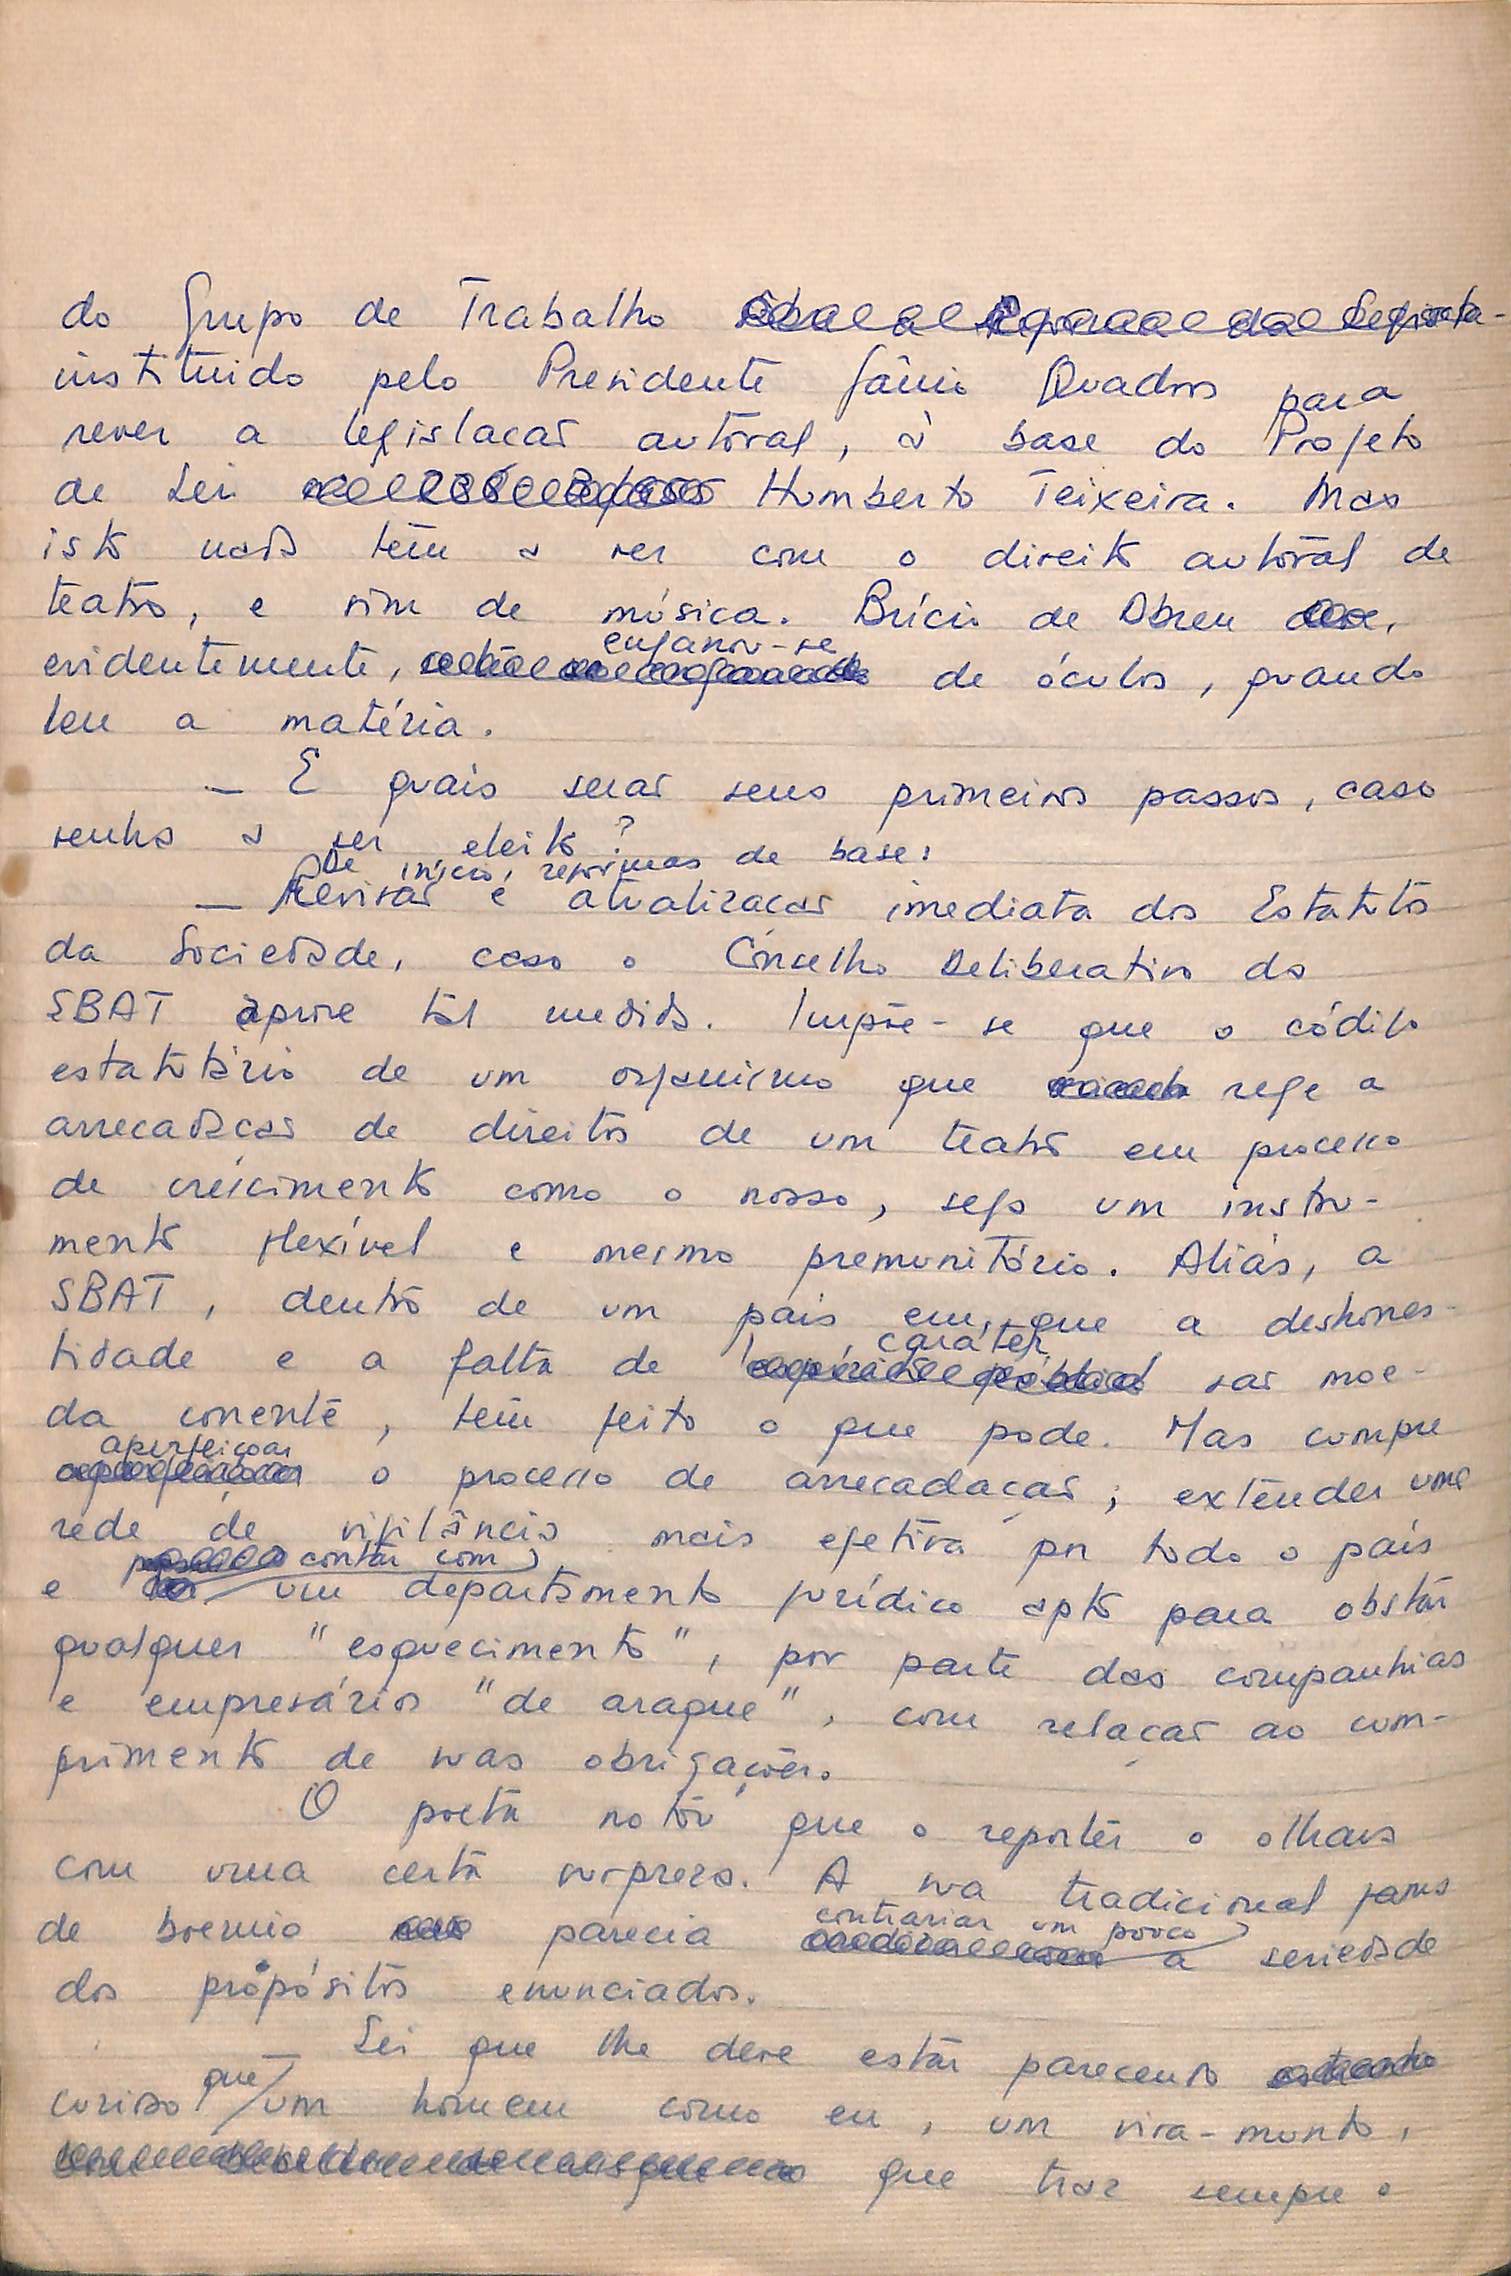 do Grupo de Trabalho
instituido pelo Presidente Jânio Quadros para
rever a legislação autoral, à base do Projeto
de Lei Humberto Teixeira. Mas
isto nada têm a ver com o direito autoral de
teatro, e sim de música. Brício de Abreu,
enganou-se
evidentemente, de óculos, quando
leu a matéria.
— E quais serão seus primeiros passos, caso
venha a ser eleito?
De início, reformas de base:
— Revisão e atualização imediata dos Estatutos
da Sociedade, caso o Conselho Deliberativo da
SBAT aprove tal medida. Impõe-se que o código
estatutário de um organismo que rege a
arrecadação de direitos de um teatro em processo
de crescimento como o nosso, seja um instru-
mento flexível e mesmo premunitório. Aliás, a
SBAT, dentro de um país em que a deshones-
caráter
tidade e a falta de são moe-
da corrente, tem feito o que pode. Mas cumpre
aperfeiçoar
o processo de arrecadação, extender uma
rede de vigilância mais efetiva por todo o país
contar com
e um departamento jurídico apto para obstar
qualquer "esquecimento", por parte das companhias
e empresários "de araque", com relação ao cum-
primento de suas obrigações.
O poeta notou que o repórter o olhava
com uma certa surpresa. A sua tradicional fama
contrariar um pouco
de boemio parecia a seriedade
dos propósitos enunciados.
— Sei que lhe deve estar parecendo
que
curioso um homem como eu, um vira-mundo,
que traz sempre o